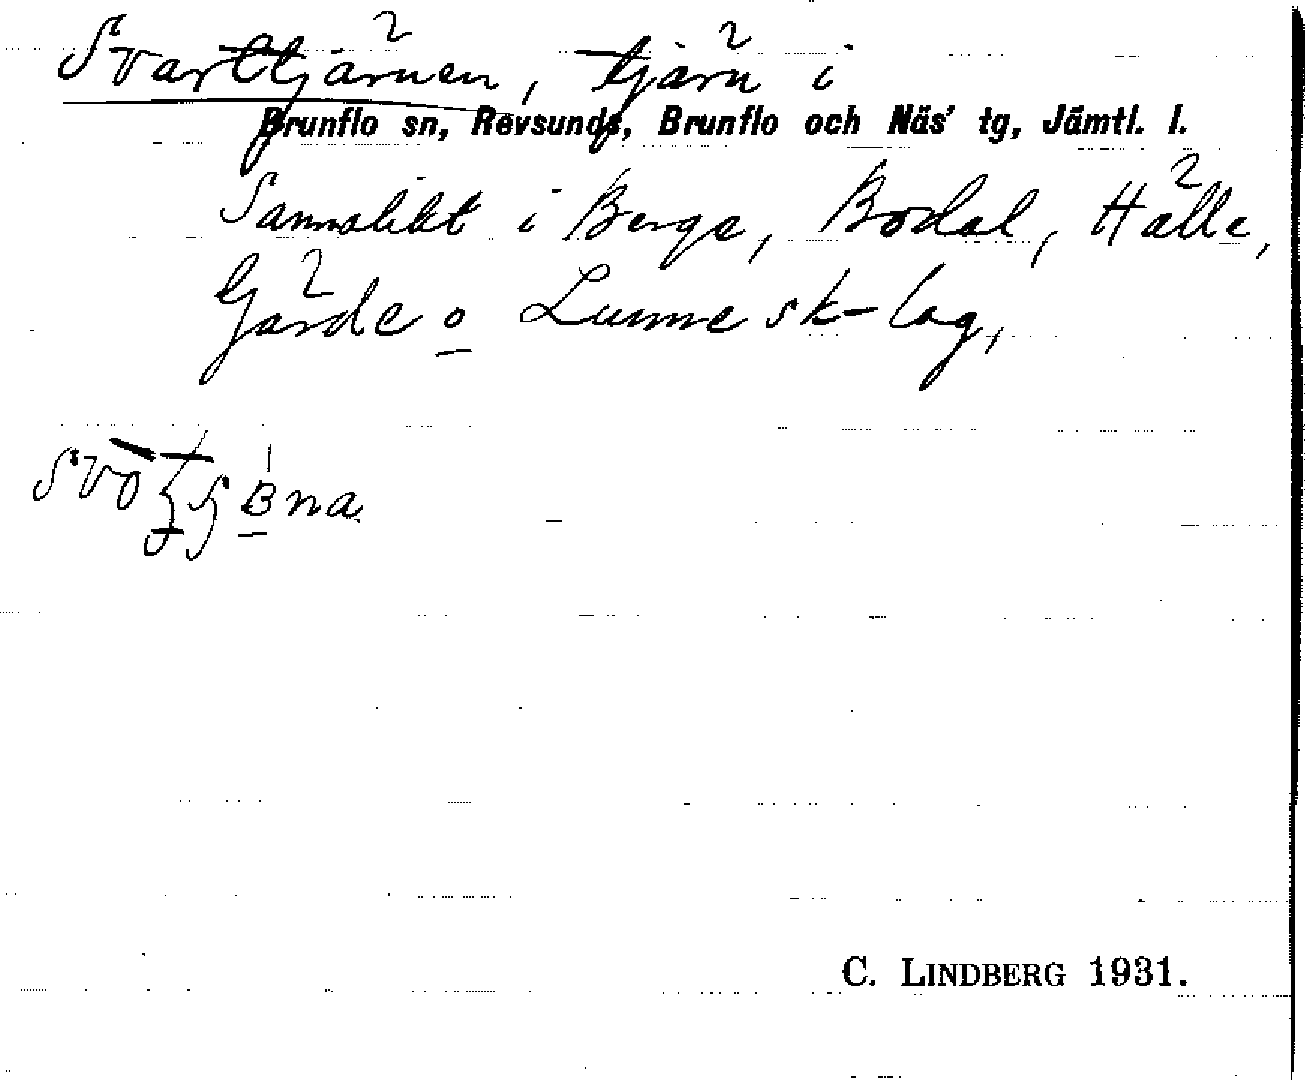 Svarttjärnen, tjärn i
Brunflo sn, Revsunds, Brunflo och Näs' tg, Jämtl. l.
Samstikt i Berge, Bodal, Hälle,
Gärde o Lunne sk-lag,
C. LINDBERG 1931.